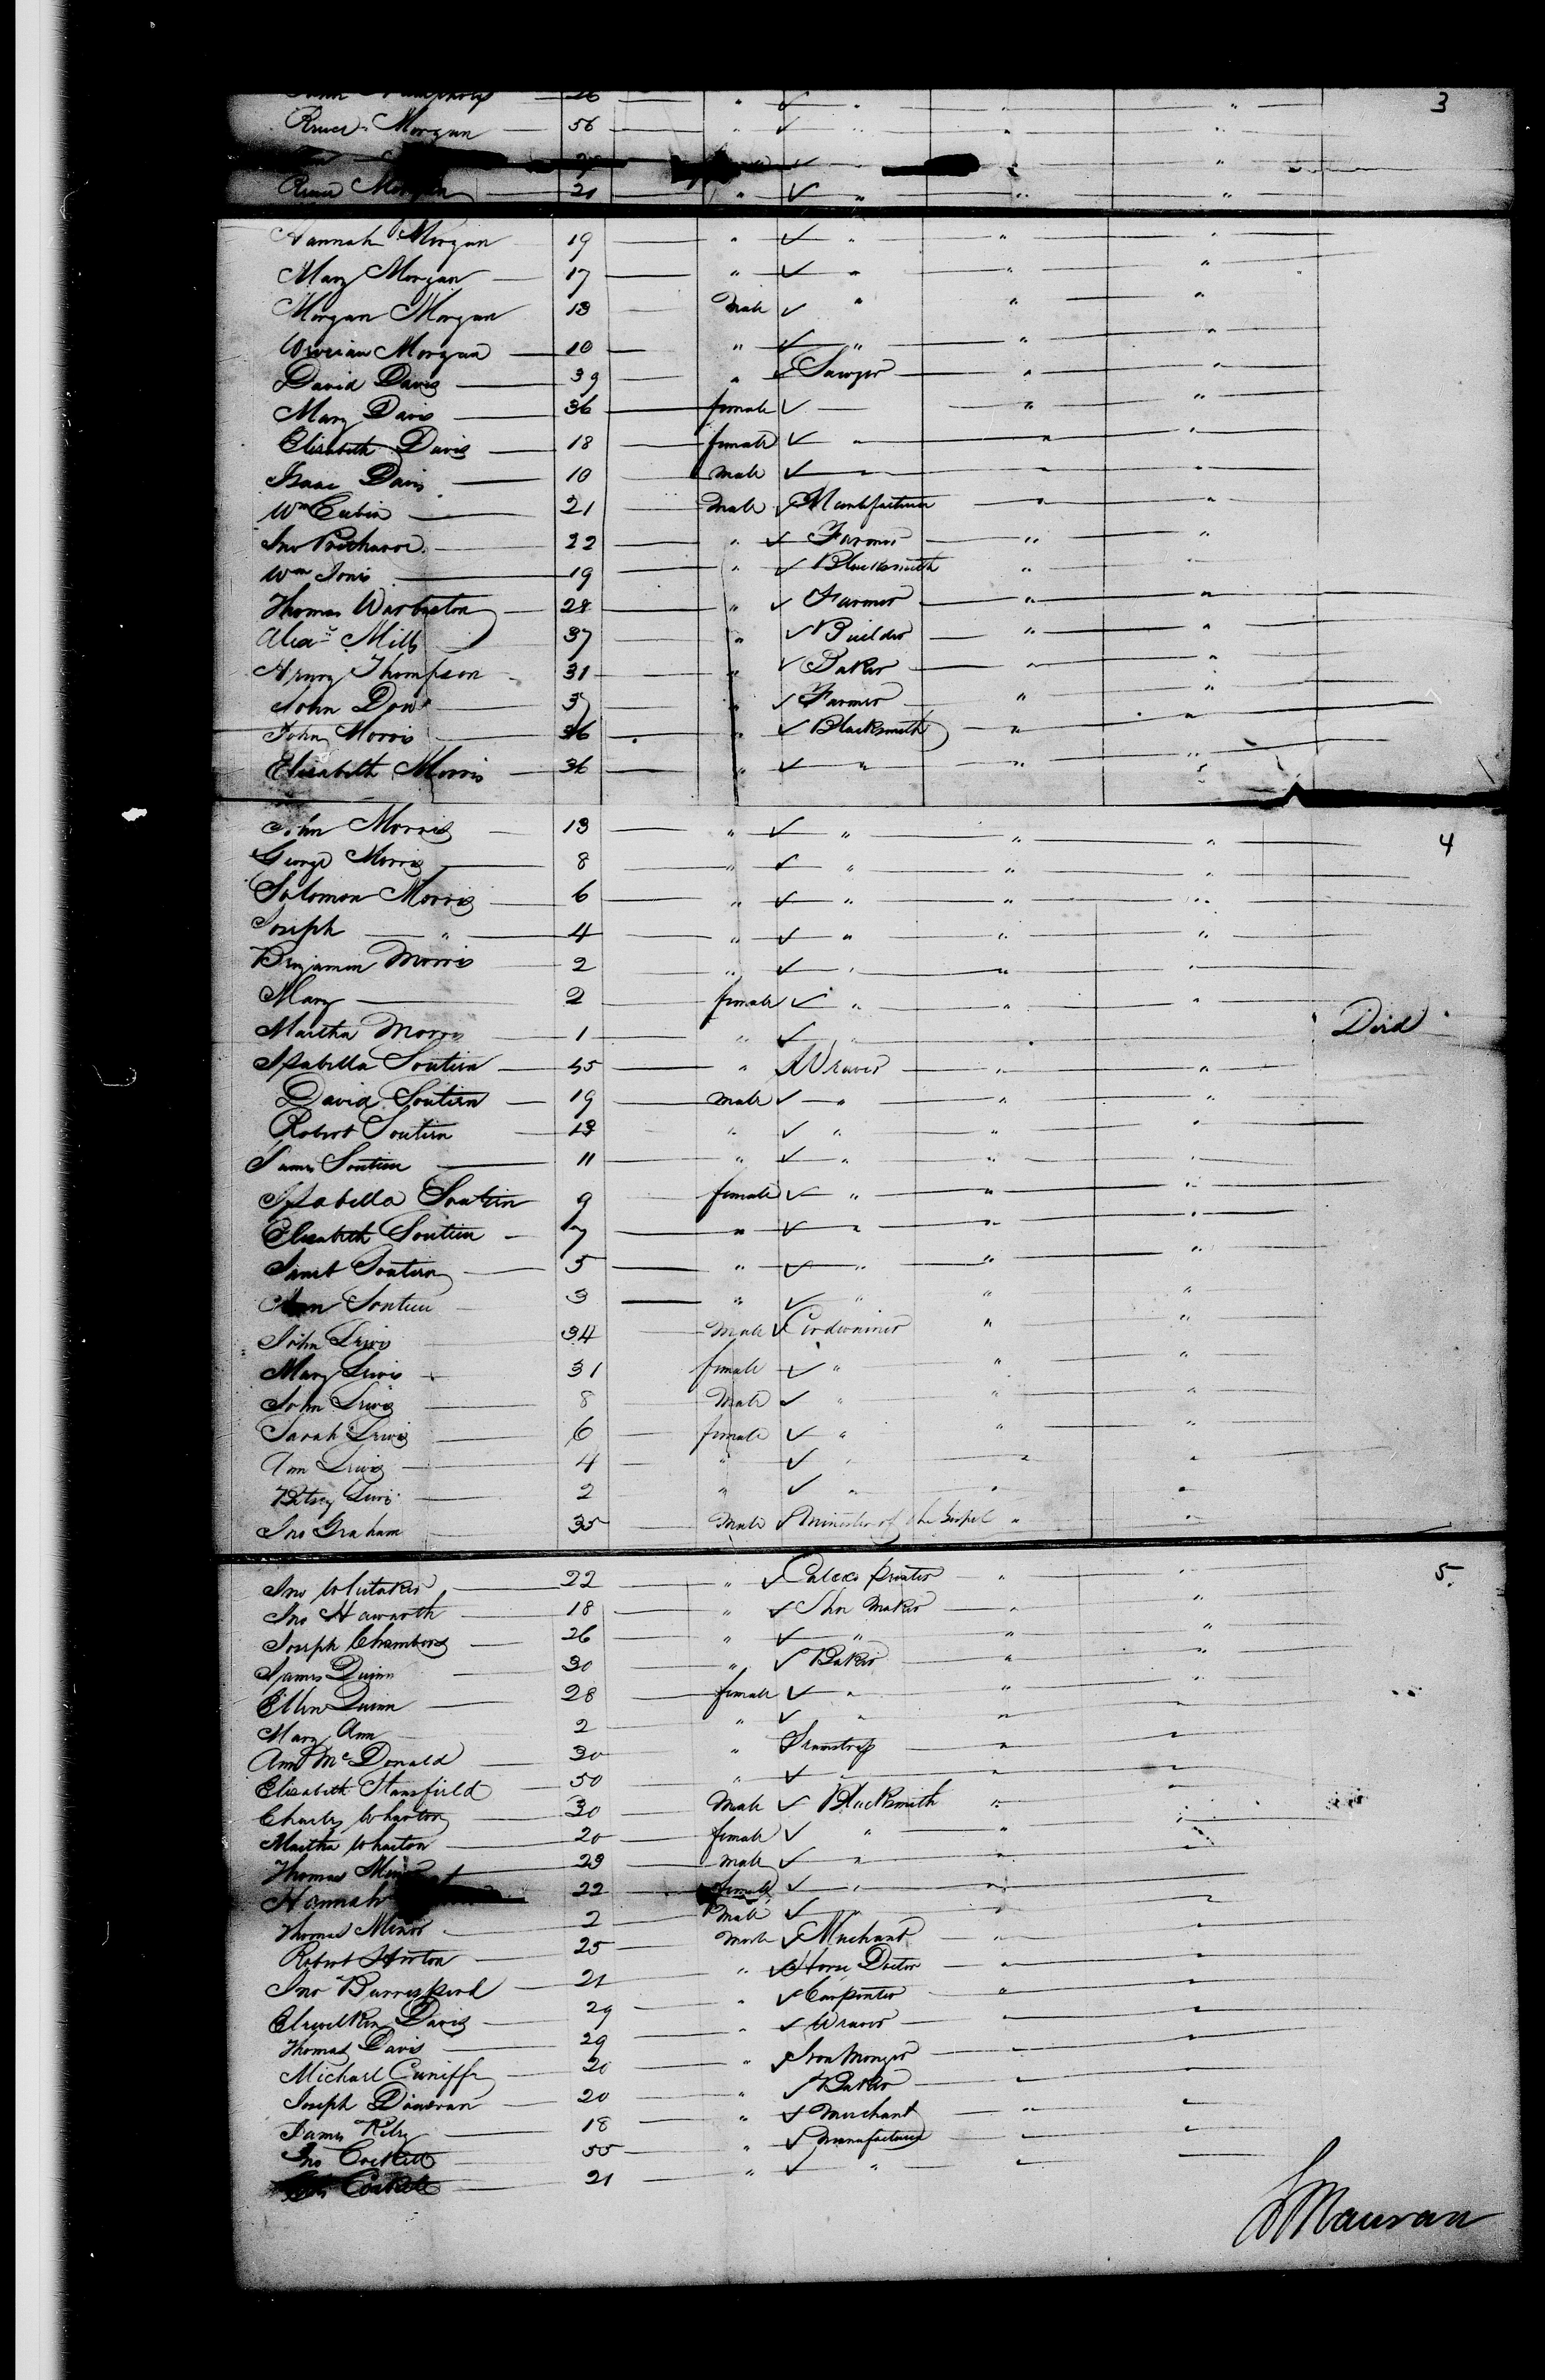 26 " " " " 3
Morgan 56 " " " "
"
Morgan 21 " " " "
Hannah Morgan 19 " " " "
Mary Morgan 17 " " " "
Morgan Morgan 13 Male " " "
Morgan 10 " " " "
David Davis 39 " Sawyer " "
Mary Davis 36 female " "
Elizabeth Davis 18 female " " "
Isaac Davis 10 Male " " "
Wm 21 Male Manufacturer " "
Jno 22 " Farmer " "
Wm Jones 19 " Blacksmith " "
Thomas Warburton 28 " Farmer " "
Alexr Mills 37 " Builder " "
Henry Thompson 31 " Baker " "
John Dow 37 " Farmer " "
John Morris 36 " Blacksmith " "
Elizabeth Morris 36 " " " "
John Morris 13 " " " " 4
George Morris 8 " " " "
Solomon Morris 6 " " " "
Joseph " 4 " " " "
Benjamin Morris 2 " " " "
Mary 2 female " " "
Martha Morris 1 " " Died
Isabella Soutien 45 " Weaver " "
David Soutien 19 Male " " "
Robert Soutien 13 " " " "
James Soutien 11 " " " "
Isabella Soutien 9 female " " "
Elizabeth Soutien 7 " " " "
Janet Soutien 5 " " " "
Ann Soutien 3 " " " "
John Lewis 34 Male Cordwainer " "
Mary Lewis 31 female " " "
John Lewis 8 Male " " "
Sarah Lewis 6 female " " "
Ann Lewis 4 " " " "
Betsey Lewis 2 " " " "
Jno Graham 35 Male Minister of the Gospel " "
Jno Whitaker 22 " Calico Printer " " 5.
Jno Haworth 18 " Shoe Maker " "
Joseph Chambers 26 " " " "
James Quinn 30 " Baker " "
Ellen Quinn 28 female " " "
Mary Ann 2 " " " "
Ann McDonald 30 " Seamstress " "
Elizabeth Stansfield 50 " " " "
Charles Wharton 30 Male Blacksmith " "
Martha Wharton 20 female " " "
Thomas Minor 23 Male " " "
Hannah 22 female " " "
Thomas Minor 2 Male " " "
Robert 25 Male Merchant " "
Jno 21 " Horse Doctor " "
Davis 29 " Carpenter " "
Thomas Davis 29 " Weaver " "
Michael Cuniffe 20 " Iron Monger " "
Joseph Donovan 20 " Baker " "
James Riley 18 " Merchant " "
Jno Corkell 55 " Manufacturer " "
Corkell 21 " " " "
Mauran